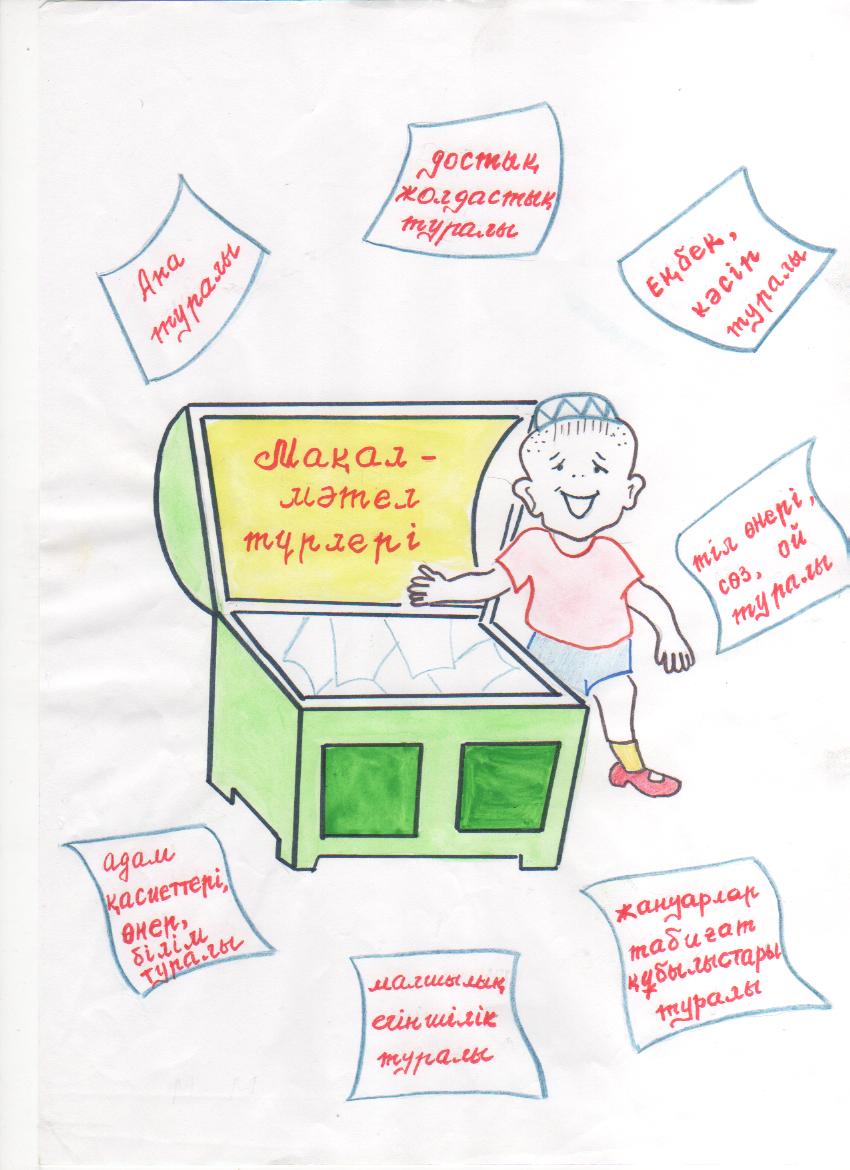 достық
жолдастық
туралы
Ана
туралы
Еңбек,
кәсіп
туралы
Мақал-
мәтел
түрлері
тіл өнері,
сөз, ой
туралы
адам
қасиеттері,
өнер,
білім
туралы
жануарлар
табиғат
құбылыстары
туралы
малшылық
егіншілік
туралы